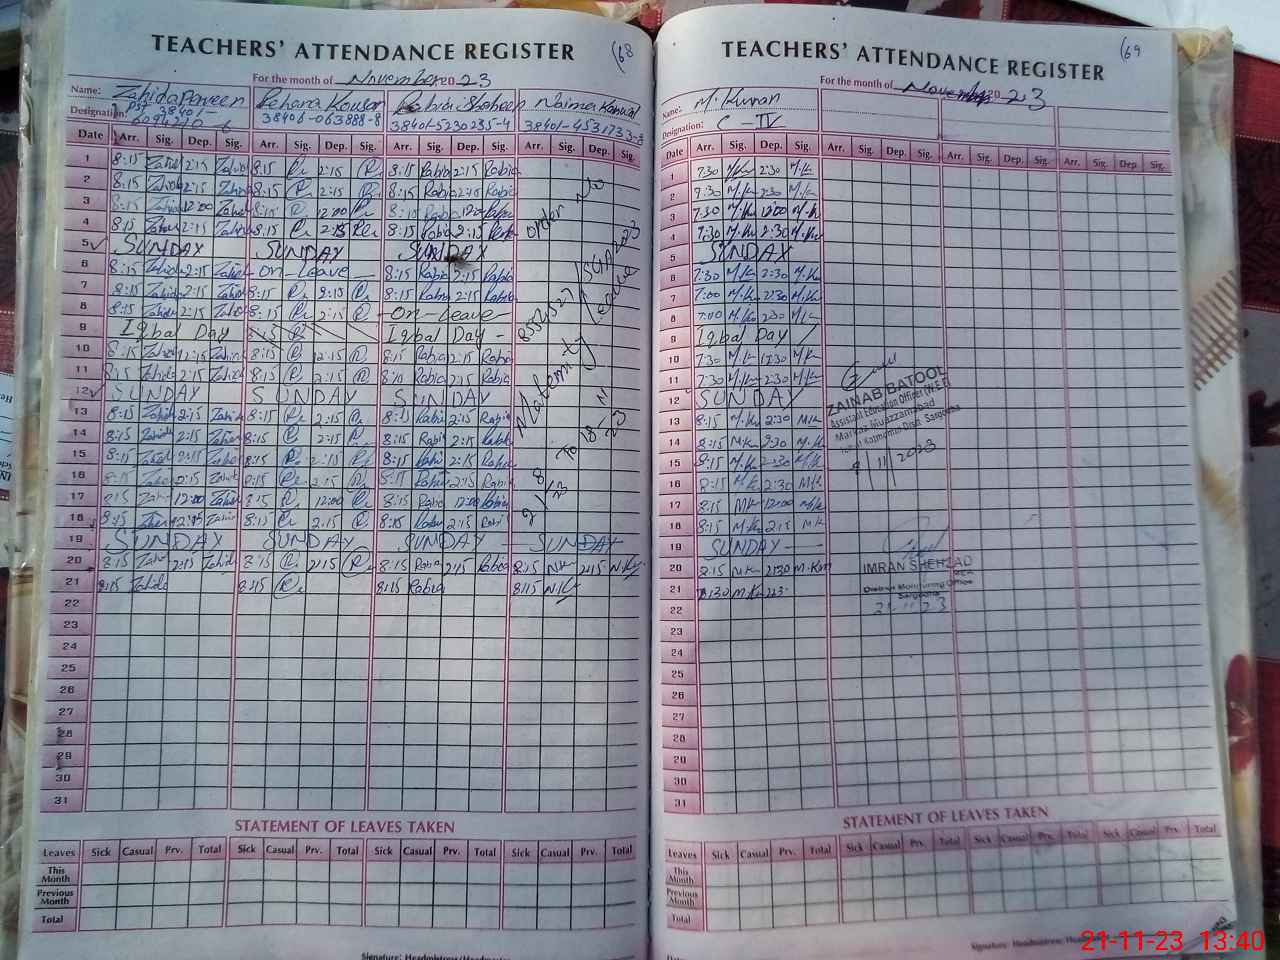 TEACHERS' ATTENDANCE REGISTER
(68
For the month of November 2023
Name: Zahida Parveen Rehana Kousar Rabia Shaheen Naima Kanwal
Designation: PST 38401- 38406-063888-8 38401-5230235-4 38401-4531733-8
Date Arr. Sig. Dep. Sig. Arr. Sig. Dep. Sig. Arr. Sig. Dep. Sig. Arr. Sig. Dep. Sig.
1 8:15 Zahid 2:15 Zahid 8:15 R 2:15 R 8:15 Rabia 2:15 Rabia
2 8:15 Zahid 2:15 Zahid 8:15 R 2:15 R 8:15 Rabia 2:15 Rabia
3 8:15 Zahid 12:00 Zahid 8:15 R 12:00 R 8:15 Rabia 12:00 Rabia
4 8:15 Zahid 2:15 Zahid 8:15 R 2:15 R 8:15 Rabia 2:15
5 SUNDAY SUNDAY SUNDAY
6 8:15 Zahid 2:15 Zahid on-Leave 8:15 Rabia 2:15 Rabia
7 8:15 Zahid 2:15 Zahid 8:15 R 2:15 R 8:15 Rabia 2:15 Rabia
8 8:15 Zahid 2:15 Zahid 8:15 R 2:15 R -On-Leave-
9 Iqbal Day Iqbal Day -
10 8:15 Zahid 12:15 Zahid 8:15 R 12:15 R 8:15 Rabia 2:15 Rabia
11 8:15 Zahid 2:15 Zahid 8:15 R 2:15 R 8:10 Rabia 2:15 Rabia
12 SUNDAY SUNDAY SUNDAY
13 8:15 Zahid 2:15 Zahid 8:15 R 2:15 R 8:15 Rabia 2:15 Rabia
14 8:15 Zahid 2:15 Zahid 8:15 R 2:15 R 8:15 Rabi 2:15 Rabia
15 8:15 Zahid 2:15 Zahid 8:15 R 2:15 R 8:15 Rabi 2:15 Rabia
16 8:15 Zahid 2:15 Zahid 8:15 R 2:15 R 8:15 Rabia 2:15 Rabia
17 8:15 Zahid 12:00 Zahid 8:15 R 12:00 R 8:15 Rabia 12:00 Rabia
18 8:15 Zahid 2:15 Zahid 8:15 R 2:15 R 8:15 Rabia 2:15 Rabi
19 SUNDAY SUNDAY SUNDAY SUNDAY
20 8:15 Zahid 2:15 Zahid 8:15 R 2:15 R 8:15 Rabia 2:15 Rabia 8:15 NK 2:15 N.K
21 8:15 Zahida 8:15 R 8:15 Rabia 8:15 N.K
22
23
24
25
26
27
28
29
30
31
order No
Maternity Leave
To 18-
STATEMENT OF LEAVES TAKEN
Leaves Sick Casual Prv. Total Sick Casual Prv. Total Sick Casual Prv. Total Sick Casual Prv. Total
This Month
Previous Month
Total
Signature: Headmistress/Headmaster
TEACHERS' ATTENDANCE REGISTER
(69
For the month of November 2023
Name: M. Kumran
Designation: C-IV
Date Arr. Sig. Dep. Sig. Arr. Sig. Dep. Sig. Arr. Sig. Dep. Sig. Arr. Sig. Dep. Sig.
1 7:30 M.Km 2:30 M.Km
2 7:30 M.Km 2:30 M.Km
3 7:30 M.Km 12:00 M.Km
4 7:30 M.Km 2:30 M.Km
5 SUNDAY
6 7:30 M.Km 2:30 M.Km
7 7:00 M.Km 2:30 M.Km
8 7:00 M.Km 2:30 M.Km
9 Iqbal Day
10 7:30 M.Km 12:30 M.Km
11 7:30 M.Km 2:30 M.Km
12 SUNDAY
13 8:15 M.Km 2:30 M.K
14 8:15 M.K 2:30 M.K
15 8:15 M.Km 2:30 M.K
16 8:15 M.K 2:30 M.K
17 8:15 M.K 12:00 M.K
18 8:15 M.Km 2:15 M.K
19 SUNDAY
20 8:15 M.K 2:30 M.Km
21 8:30 M.Km 2:3
22
23
24
25
26
27
28
29
30
31
ZAINAB BATOOL
Assistant Education Officer (W.E.E)
Markaz Muazzamabad
Tehsil Kotmomin Distt: Sargodha
9/11/2023
IMRAN SHEHZAD
MEA
District Monitoring Office
Sargodha
21-11-23
STATEMENT OF LEAVES TAKEN
Leaves Sick Casual Prv. Total Sick Casual Prv. Total Sick Casual Prv. Total Sick Casual Prv. Total
This Month
Previous Month
Total
Signature: Headmistress/Headmaster
21-11-23 13:40